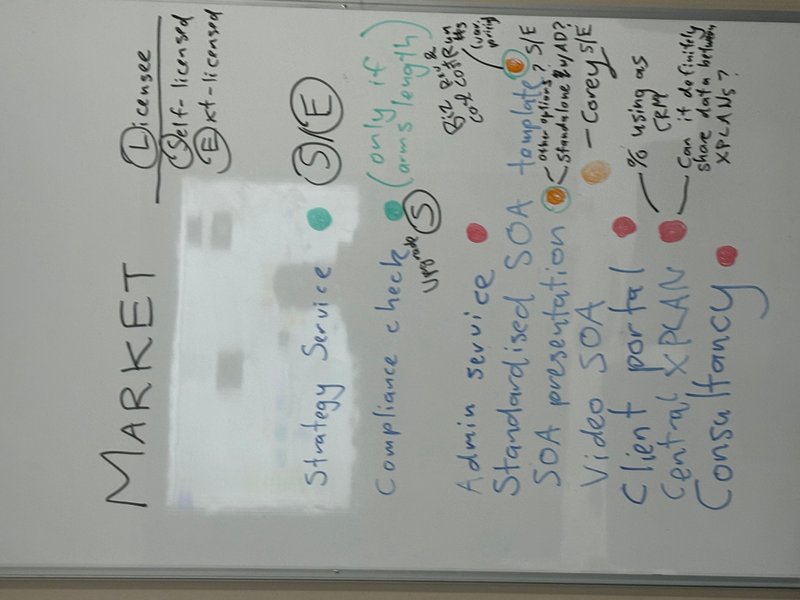 MARKET
Licensee
Self-licensed
Ext-licensed
Strategy Service S/E
Compliance check (only if
arms length)
Upgrade S
Admin service
Standardised SOA template ? S/E
Biz Rev &
cost Run
(var.
pricing
SOA presentation
other options?
Standalone & w/AD?
Video SOA - Corey S/E
Client portal
% using as
CRM
Central XPLAN
Can it definitely
share data between
XPLANs?
Consultancy